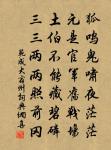 狐鳴鬼嘯夜茫茫
元是官軍舊戰場
土伯不能藏碧磷
三三兩兩照前岡
范成大州詞典網喜